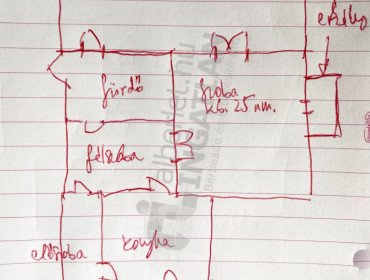 erkély
fürdő
szoba
kb. 25 nm.
félszoba
előszoba
konyha
albérlet.hu
INGATLAN